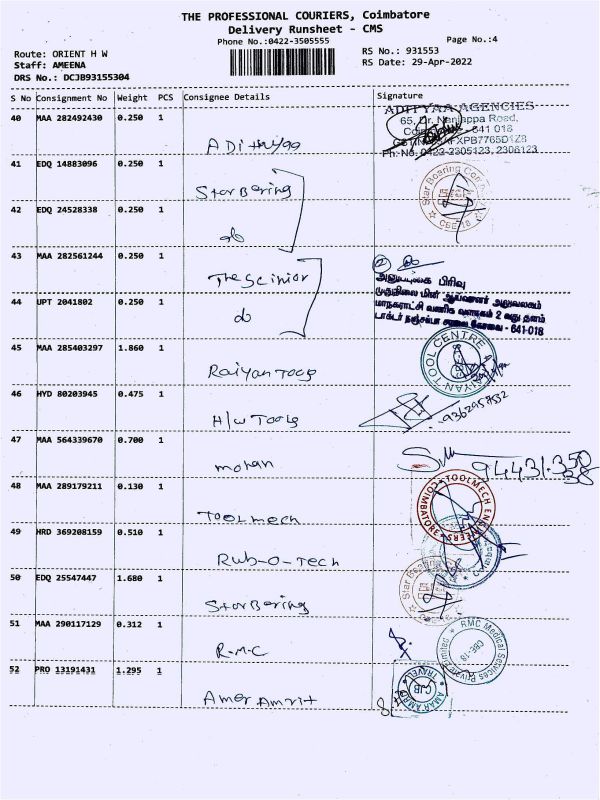 THE PROFESSIONAL COURIERS, Coimbatore
Delivery Runsheet - CMS
Phone No.:0422-3505555
Page No.:4
Route: ORIENT H W
RS No.: 931553
Staff: AMEENA
RS Date: 29-Apr-2022
DRS No.: DCJB93155304
S No Consignment No Weight PCS Consignee Details Signature
40 MAA 282492430 0.250 1
ADithiyaa
ADITYAA AGENCIES
65, Dr. Nanjappa Road,
641 018
Ph: No: 0422-2305123, 2306123
41 EDQ 14883096 0.250 1
StarBering
Star Boaring
CBE-18
42 EDQ 24528338 0.250 1
do
43 MAA 282561244 0.250 1
The Scinior
அனுப்புகை பிரிவு
முதுநிலை மின் ஆய்வாளர் அலுவலகம்
மாநகராட்சி வணிக வளாகம் 2 வது தளம்
டாக்டர் நஞ்சப்பா சாலை கோவை - 641-018
44 UPT 2041802 0.250 1
do
45 MAA 285403297 1.860 1
Raiyan Tools
RAIYAN TOOL CENTRE
46 HYD 80203945 0.475 1
H/w Tools
9362957532
47 MAA 564339670 0.700 1
mohan
94431.35038
48 MAA 289179211 0.130 1
Toolmech
TOOLMECH ENGINEERS
COIMBATORE
49 HRD 369208159 0.510 1
Rub-O-Tech
50 EDQ 25547447 1.680 1
StarBering
Star Boaring
CBE-18
51 MAA 290117129 0.312 1
R-M-C
RMC Medical Services Private Limited
CBE-18
52 PRO 13191431 1.295 1
Amar Amrit
AMAR AMRIT TRAVELS
CJB